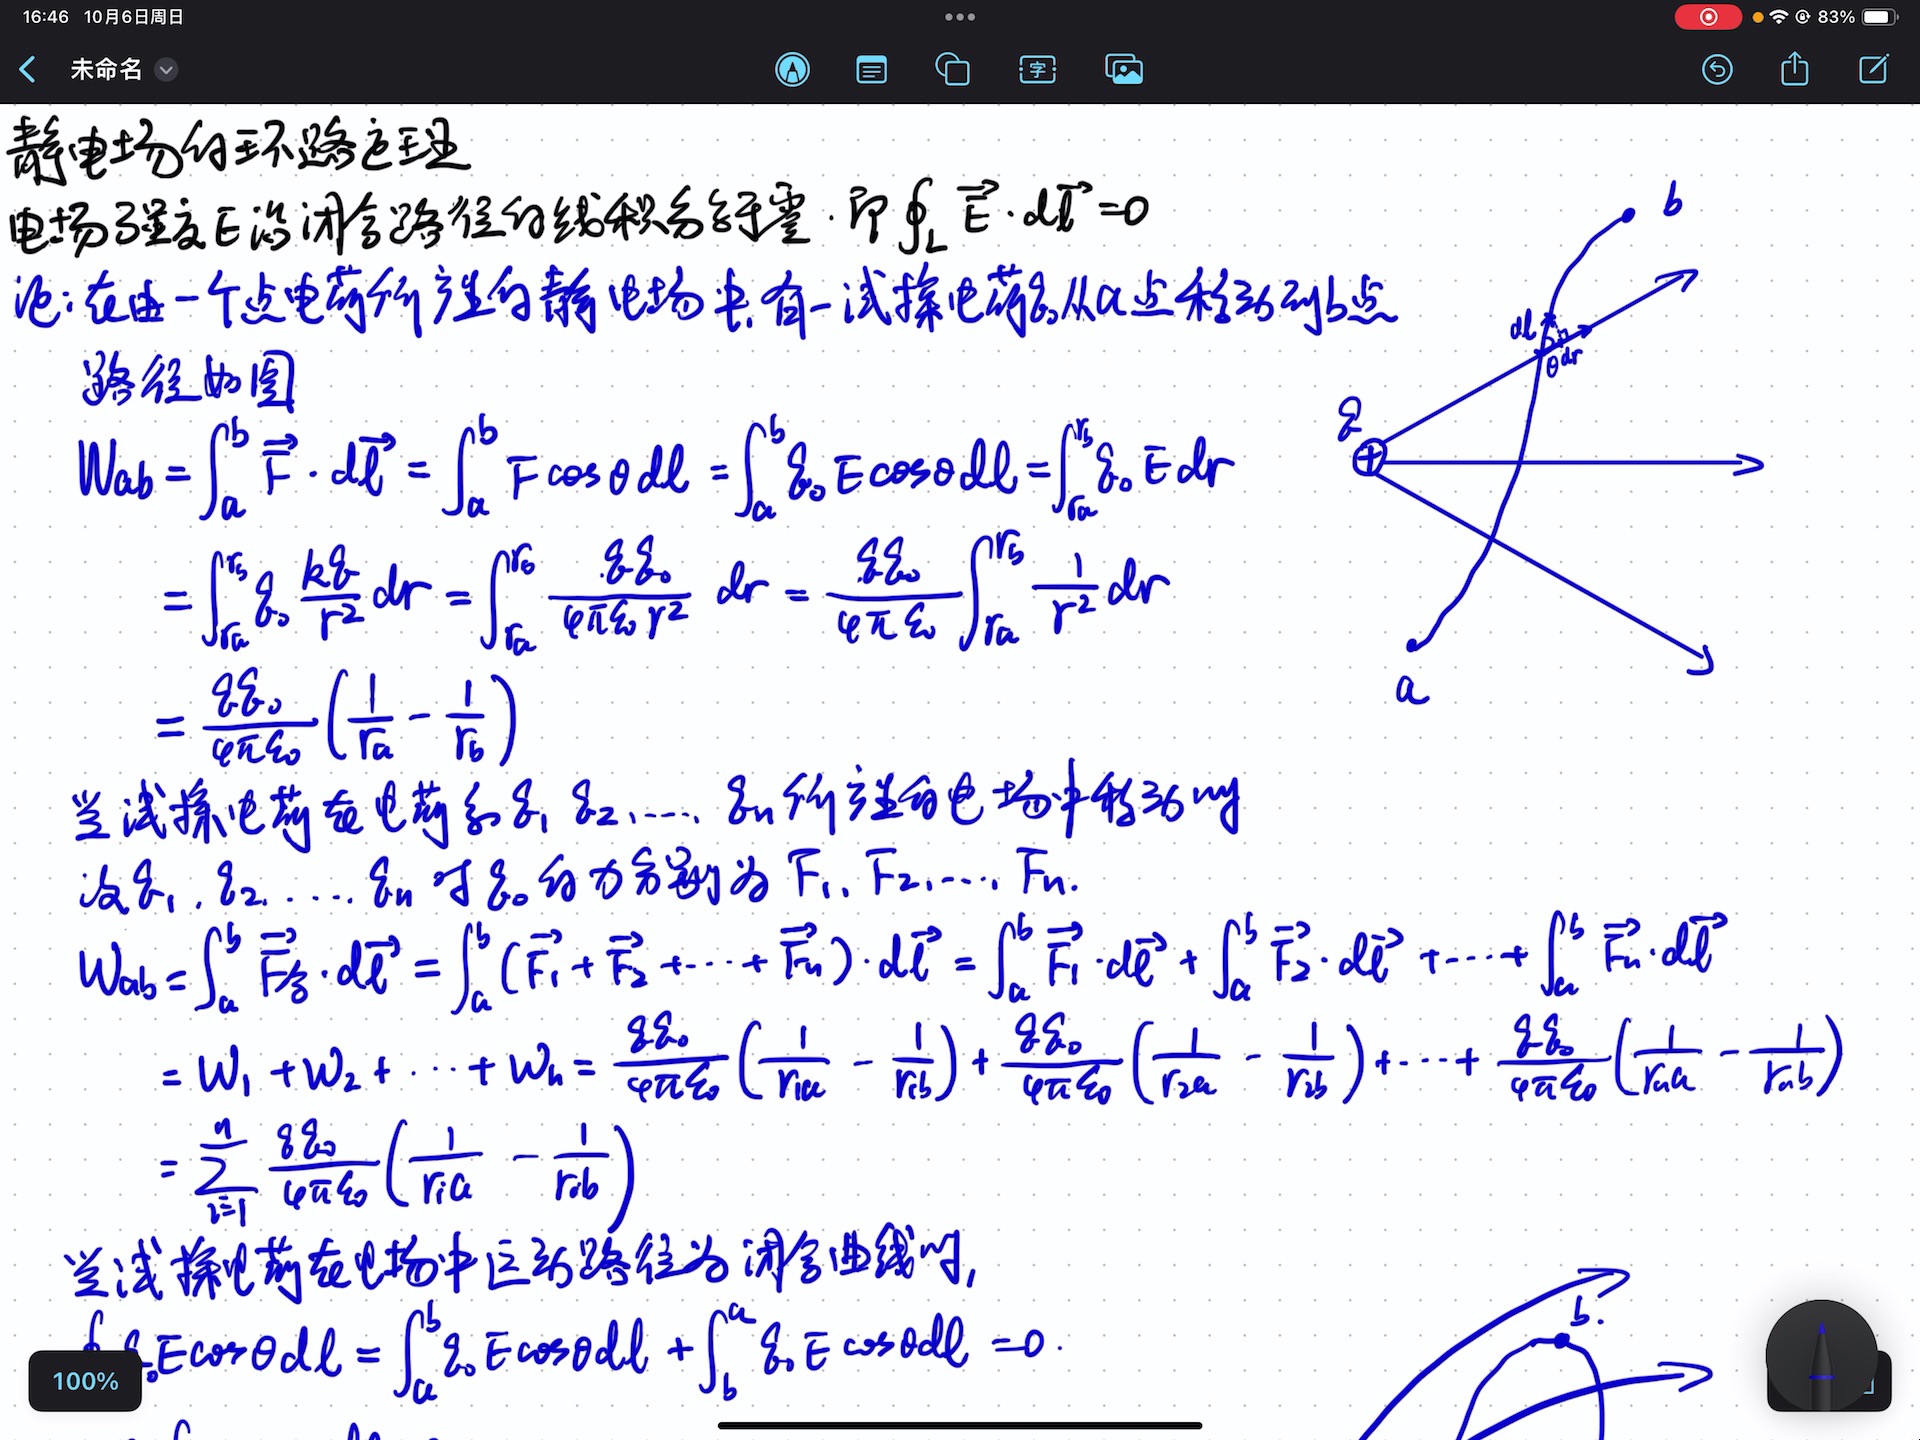 16:46 10月6日周日
83%
未命名
字
静电场的环路定理
电场强度E沿闭合路径的线积分等于零.即∮_L E⃗·dl⃗=0
在由一个点电荷所产生的静电场中,有一试探电荷q₀从a点移动到b点
路径如图
W_ab=∫_a^b F⃗·dl⃗=∫_a^b Fcosθdl=∫_a^b q₀Ecosθdl=∫_{r_a}^{r_b} q₀Edr
=∫_{r_a}^{r_b} q₀ kq/r² dr=∫_{r_a}^{r_b} qq₀/4πε₀r² dr=qq₀/4πε₀ ∫_{r_a}^{r_b} 1/r² dr
=qq₀/4πε₀ (1/r_a - 1/r_b)
当试探电荷在电荷系q₁ q₂,..., q_n所产生的电场中移动时
设q₁,q₂,...,q_n对q₀的力分别为F₁,F₂,...,F_n.
W_ab=∫_a^b F⃗合·dl⃗=∫_a^b (F⃗₁+F⃗₂+...+F⃗_n)·dl⃗=∫_a^b F⃗₁·dl⃗+∫_a^b F⃗₂·dl⃗+...+∫_a^b F⃗_n·dl⃗
=W₁+W₂+...+W_n=qq₀/4πε₀ (1/r_1a - 1/r_1b)+qq₀/4πε₀ (1/r_2a - 1/r_2b)+...+qq₀/4πε₀ (1/r_na - 1/r_nb)
=∑_{i=1}^n qq₀/4πε₀ (1/r_ia - 1/r_ib)
当试探电荷在电场中运动路径为闭合曲线时,
∮q₀Ecosθdl=∫_a^b q₀Ecosθdl+∫_b^a q₀Ecosθdl=0.
100%
b
dl
θ
dr
q
+
a
b.